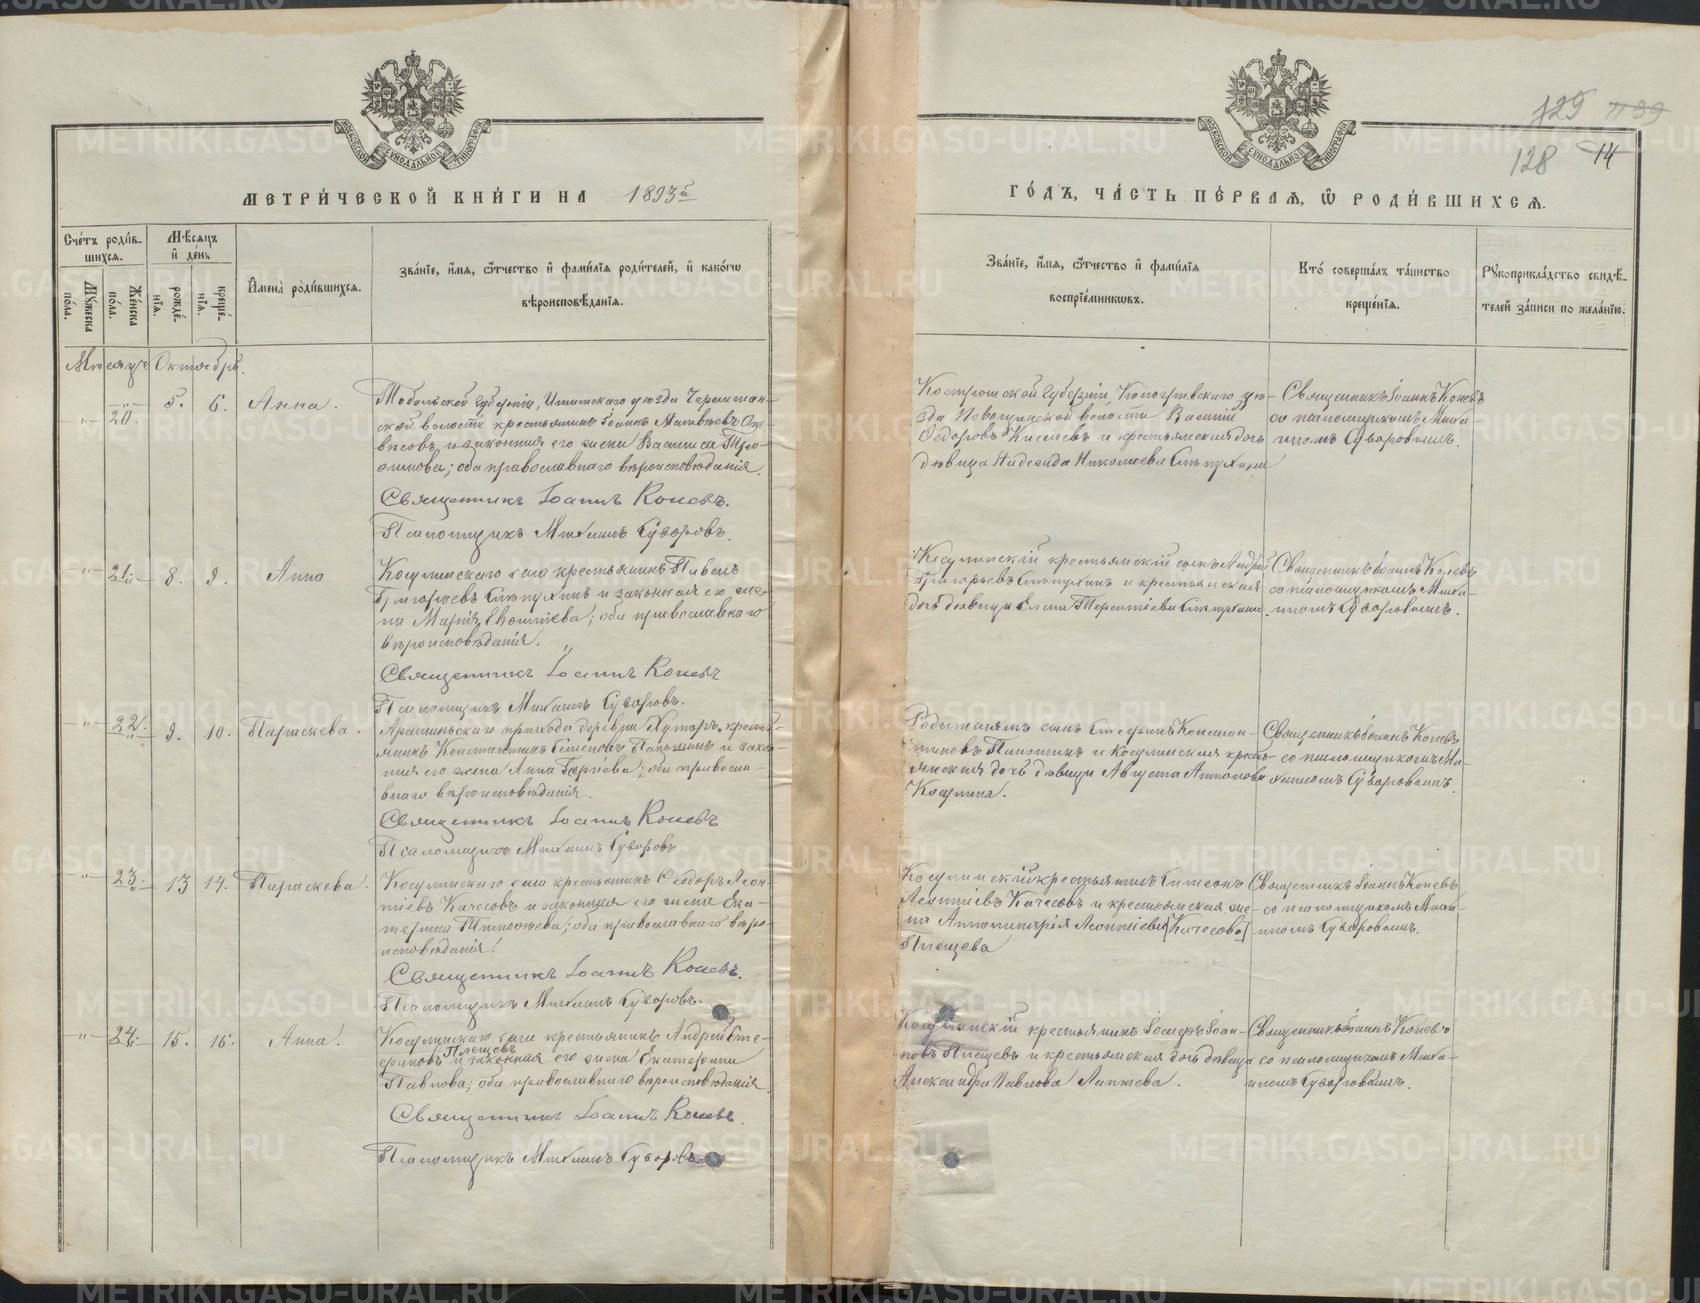 МЕТРИ́ЧЕСКОЙ КНИ́ГИ НА 1893й
ГО́ДЪ, ЧА́СТЬ ПЕ́РВАЯ, Ѿ РОДИ́ВШИХСЯ.
129
128 14
Сче́тъ роди́вшихся.
Мꙋ́жеска по́ла.
Же́нска по́ла.
Мѣ́сяцъ и҆ де́нь
рожде́нїя.
креще́нїя.
И҆мена̀ роди́вшихся.
Зва́нїе, и҆́мя, ѻ҆́тчество и҆ фами́лїя роди́телей, и҆ како́гѡ вѣроисповѣ́данїя.
Зва́нїе, и҆́мя, ѻ҆́тчество и҆ фами́лїя воспрїе́мникѡвъ.
Кто̀ соверша́лъ та́инство креще́нїя.
Рꙋкоприкла́дство свидѣ́телей за́писи по жела́нїю.
Мѣсяцъ Октябрь.
20. 5. 6. Анна.
Тобольской губерніи, Ишимскаго уѣзда
ской волости крестьянинъ Іоаннъ Матвѣевъ
и законная его жена Василиса
; оба православнаго вѣроисповѣданія.
Священникъ Іоаннъ Коневъ.
Псаломщикъ Михаилъ Суворовъ.
Костромской губерніи, Кологривскаго уѣ-
зда волости Василій
Ѳедоровъ Киселевъ и крестьянская дочь
дѣвица Надежда Николаева Стяпухина
Священникъ Іоаннъ Коневъ
со псаломщикомъ Миха-
иломъ Суворовымъ.
21. 8. 9. Анна
Косулинскаго села крестьянинъ Павелъ
Григорьевъ Стяпухинъ и законная его же-
на Марія Леонтіева; оба православнаго
вѣроисповѣданія.
Священникъ Іоаннъ Коневъ
Псаломщикъ Михаилъ Суворовъ.
Косулинскій крестьянскій сынъ Андрей
Григорьевъ Стяпухинъ и крестьянская
дочь дѣвица Елена Терентіева Стяпухина.
Священникъ Іоаннъ Коневъ
со псаломщикомъ Миха-
иломъ Суворовымъ.
22. 9. 10. Параскева.
Арамильскаго прихода деревни Хуторъ, кресть-
янинъ Константинъ Семеновъ Паньшинъ и закон-
ная его жена Анна ; оба правосла-
внаго вѣроисповѣданія.
Священникъ Іоаннъ Коневъ
Псаломщикъ Михаилъ Суворовъ.
сынъ Стефанъ Констан-
тиновъ и Косулинская кресть-
янская дочь дѣвица Августа Антонова
Косулина.
Священникъ Іоаннъ Коневъ
со псаломщикомъ Ми-
хаиломъ Суворовымъ.
23. 13 14. Параскева.
Косулинскаго села крестьянинъ Ѳеодоръ Леон-
тіевъ Качесовъ и законная его жена Ека-
терина Тимоѳеева; оба православнаго вѣро-
исповѣданія.
Священникъ Іоаннъ Коневъ.
Псаломщикъ Михаилъ Суворовъ.
Косулинскій крестьянинъ Симеонъ
Леонтіевъ Качесовъ и крестьянская же-
на Апполинарія Леонтіева (Качесова)
Плещева
Священникъ Іоаннъ Коневъ
со псаломщикомъ Миха-
иломъ Суворовымъ.
24. 15. 16. Анна.
Косулинскаго села крестьянинъ Андрей Сте-
фановъ Плещевъ и законная его жена Екатерина
Павлова; оба православнаго вѣроисповѣданія
Священникъ Іоаннъ Коневъ.
Псаломщикъ Михаилъ Суворовъ.
Косулинскій крестьянинъ Іоан-
новъ Плещевъ и крестьянская дочь дѣвица
Александра Павлова Лаптева.
Священникъ Іоаннъ Коневъ
со псаломщикомъ Миха-
иломъ Суворовымъ.
METRIKI.GASO-URAL.RU